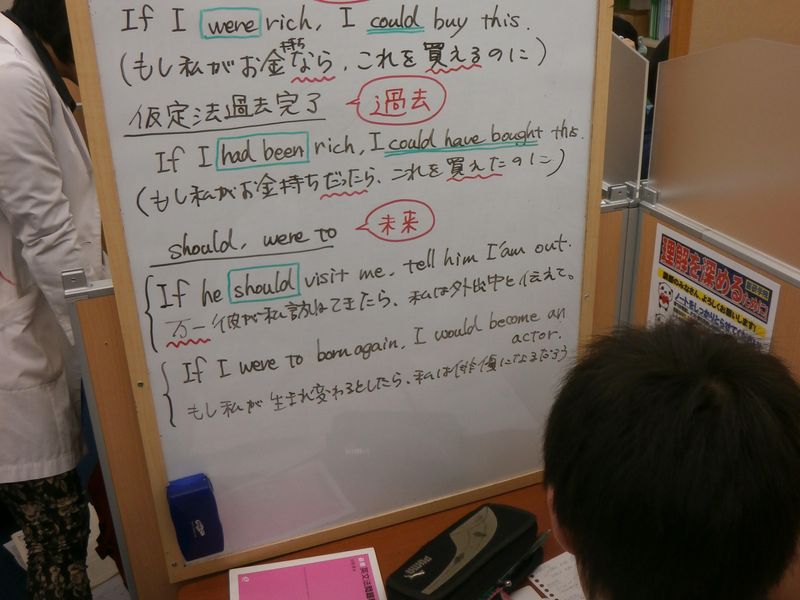 If I were rich, I could buy this.
(もし私がお金持ちなら、これを買えるのに)
仮定法過去完了
過去
If I had been rich, I could have bought this.
(もし私がお金持ちだったら、これを買えたのに)
should, were to
未来
If he should visit me, tell him I'am out.
万一彼が私訪ねてきたら、私は外出中と伝えて。
If I were to born again, I would become an
actor.
もし私が生まれ変わるとしたら、私は俳優になるだろう
理解を深める
よろしくお願いします!
ノートをしっかりとらせて
PUMA
英文法